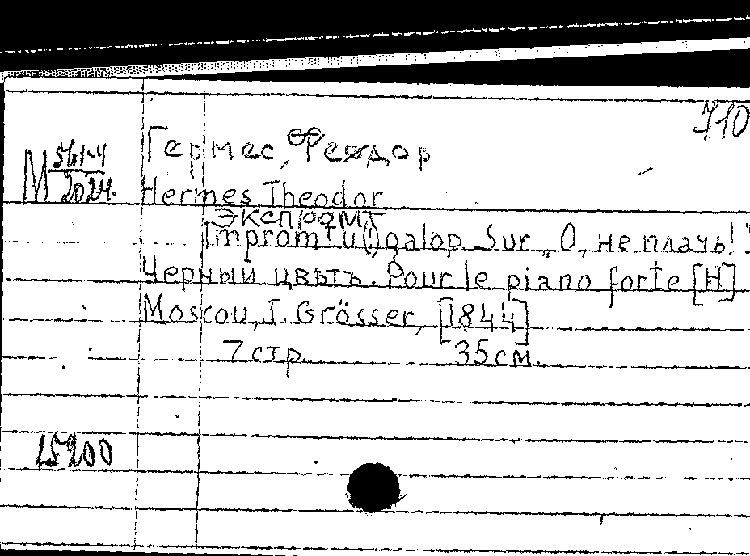 710
М 561-4
2024.
Гермес, Феодор
Hermes Theodor
Экспромт
Impromtu(!) galop. Sur „О, не плачь!"
Черный цвѣтъ. Pour le piano forte [Н]
Moscou, J. Grösser, [1844]
7 стр. 35 см.
15200